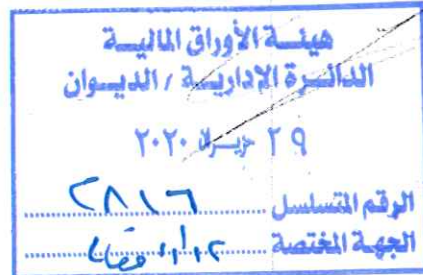 هيئة الأوراق المالية
الدائرة الإدارية / الديوان
٢٩ حزيران ٢٠٢٠
الرقم المتسلسل ٢٨١٦
الجهة المختصة